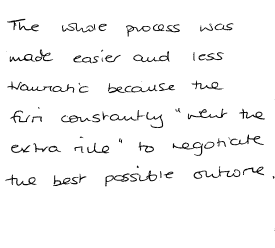 The whole process was
made easier and less
traumatic because the
firm constantly "went the
extra mile" to negotiate
the best possible outcome.